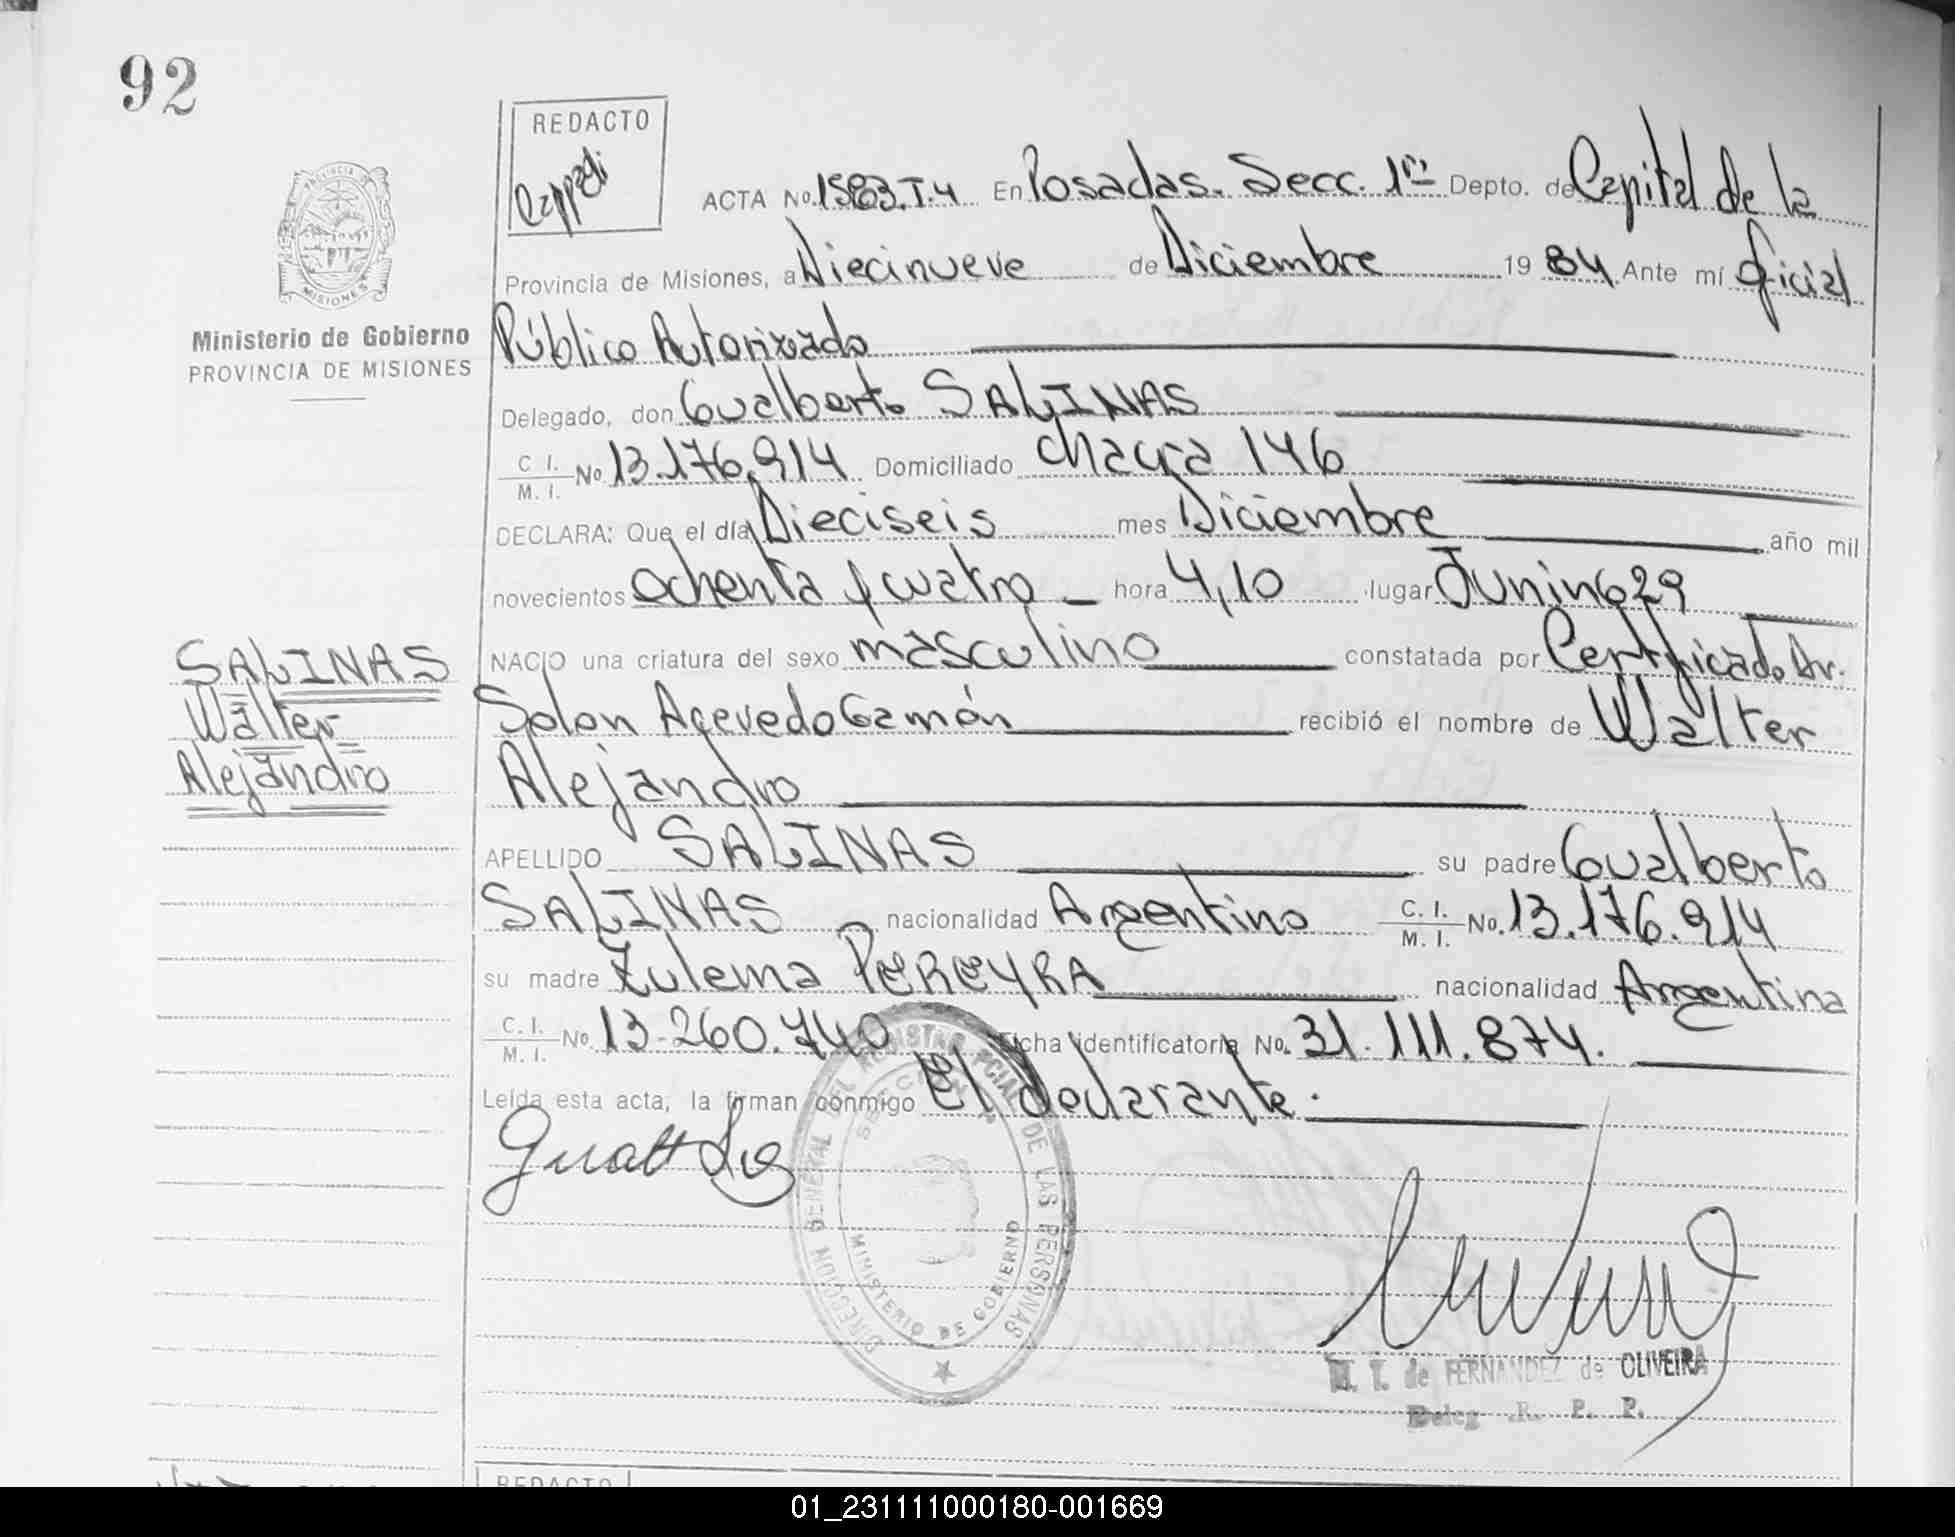 92
REDACTO
Cappedi
ACTA No. 1583.T.4 En Posadas. Secc. 1ra Depto. de Capital de la
Provincia de Misiones, a Diecinueve de Diciembre 19 84 Ante mí Oficial
MISIONES
Ministerio de Gobierno
PROVINCIA DE MISIONES
Público Autorizado
Delegado, don Gualberto SALINAS
C. I. / M. I. No. 13.176.914 Domiciliado Chacra 146
DECLARA: Que el día Dieciseis mes Diciembre año mil
novecientos ochenta y cuatro hora 4,10 lugar Junin 629
NACIO una criatura del sexo masculino constatada por Certificado Dr.
Solon Acevedo Gamón recibió el nombre de Walter
Alejandro
SALINAS
Walter
Alejandro
APELLIDO SALINAS su padre Gualberto
SALINAS nacionalidad Argentino C. I. / M. I. No. 13.176.914
su madre Zulema PEREYRA nacionalidad Argentina
C. I. / M. I. No. 13.260.740 Ficha identificatoria No. 31.111.874.
Leída esta acta, la firman conmigo El declarante.
DIRECCION GENERAL DEL REGISTRO PCIAL DE LAS PERSONAS
SECCION
MINISTERIO DE GOBIERNO
M. I. de FERNANDEZ de OLIVEIRA
Deleg. R. P. P.
REDACTO
01_231111000180-001669